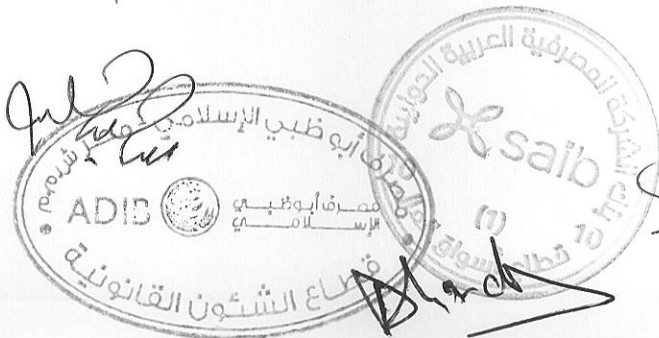 مصرف أبوظبي الإسلامي - مصر ش.م.م
ADIB
مصرف أبوظبي
الإسلامي
قطاع الشئون القانونية
الشركة المصرفية العربية الدولية
saib
(1)
10
قطاع أسواق المال